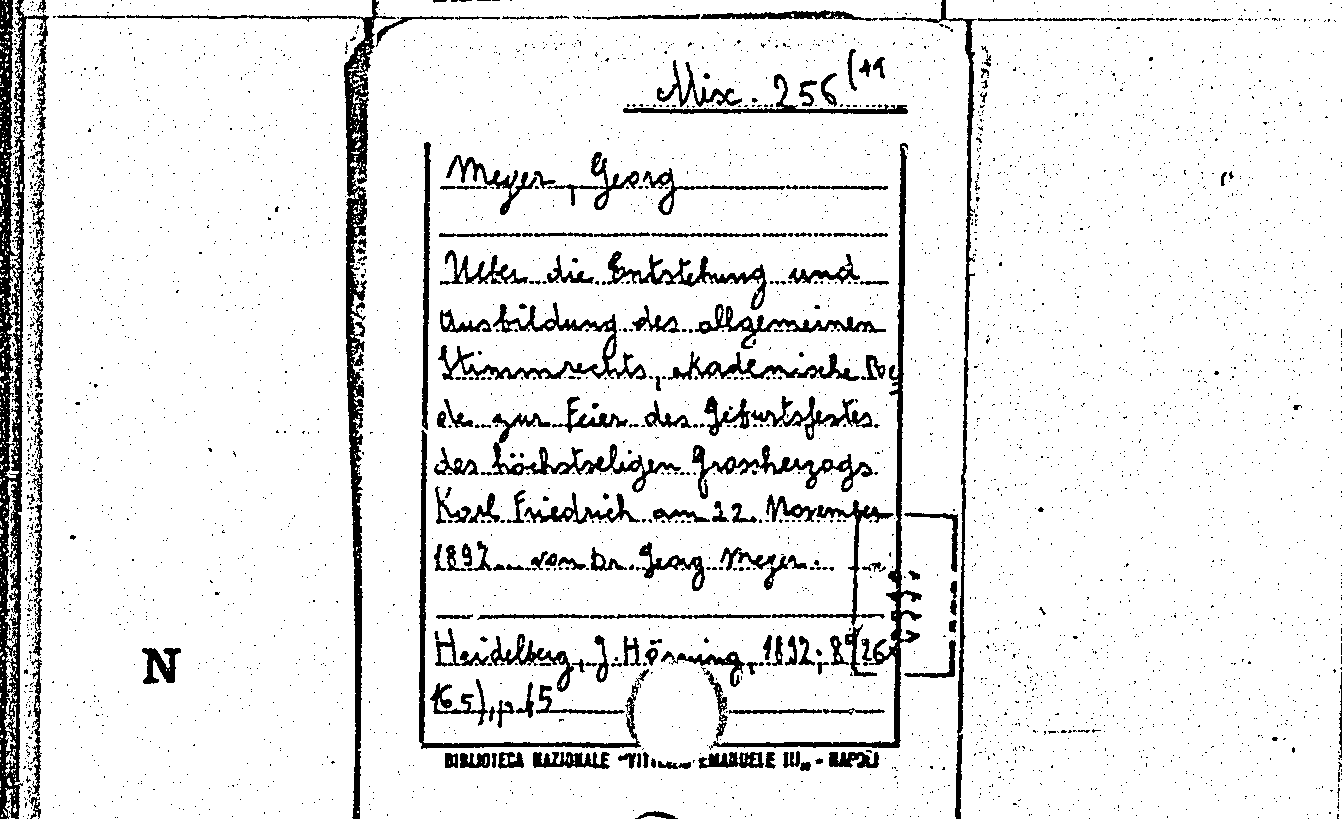 Misc. 256(49
Meyer, Georg
Ueber die Entstehung und
Ausbildung des allgemeinen
Stimmrechts, akademische Re
de zur Feier des Geburtsfestes
des höchstseligen Grossherzogs
Karl Friedrich am 22. November
1892... von Dr. Georg Meyer.
N
Heidelberg, J. Hörning, 1892; 8º (26
BIBLIOTECA NAZIONALE "VITTORIO EMANUELE III„ - NAPOLI